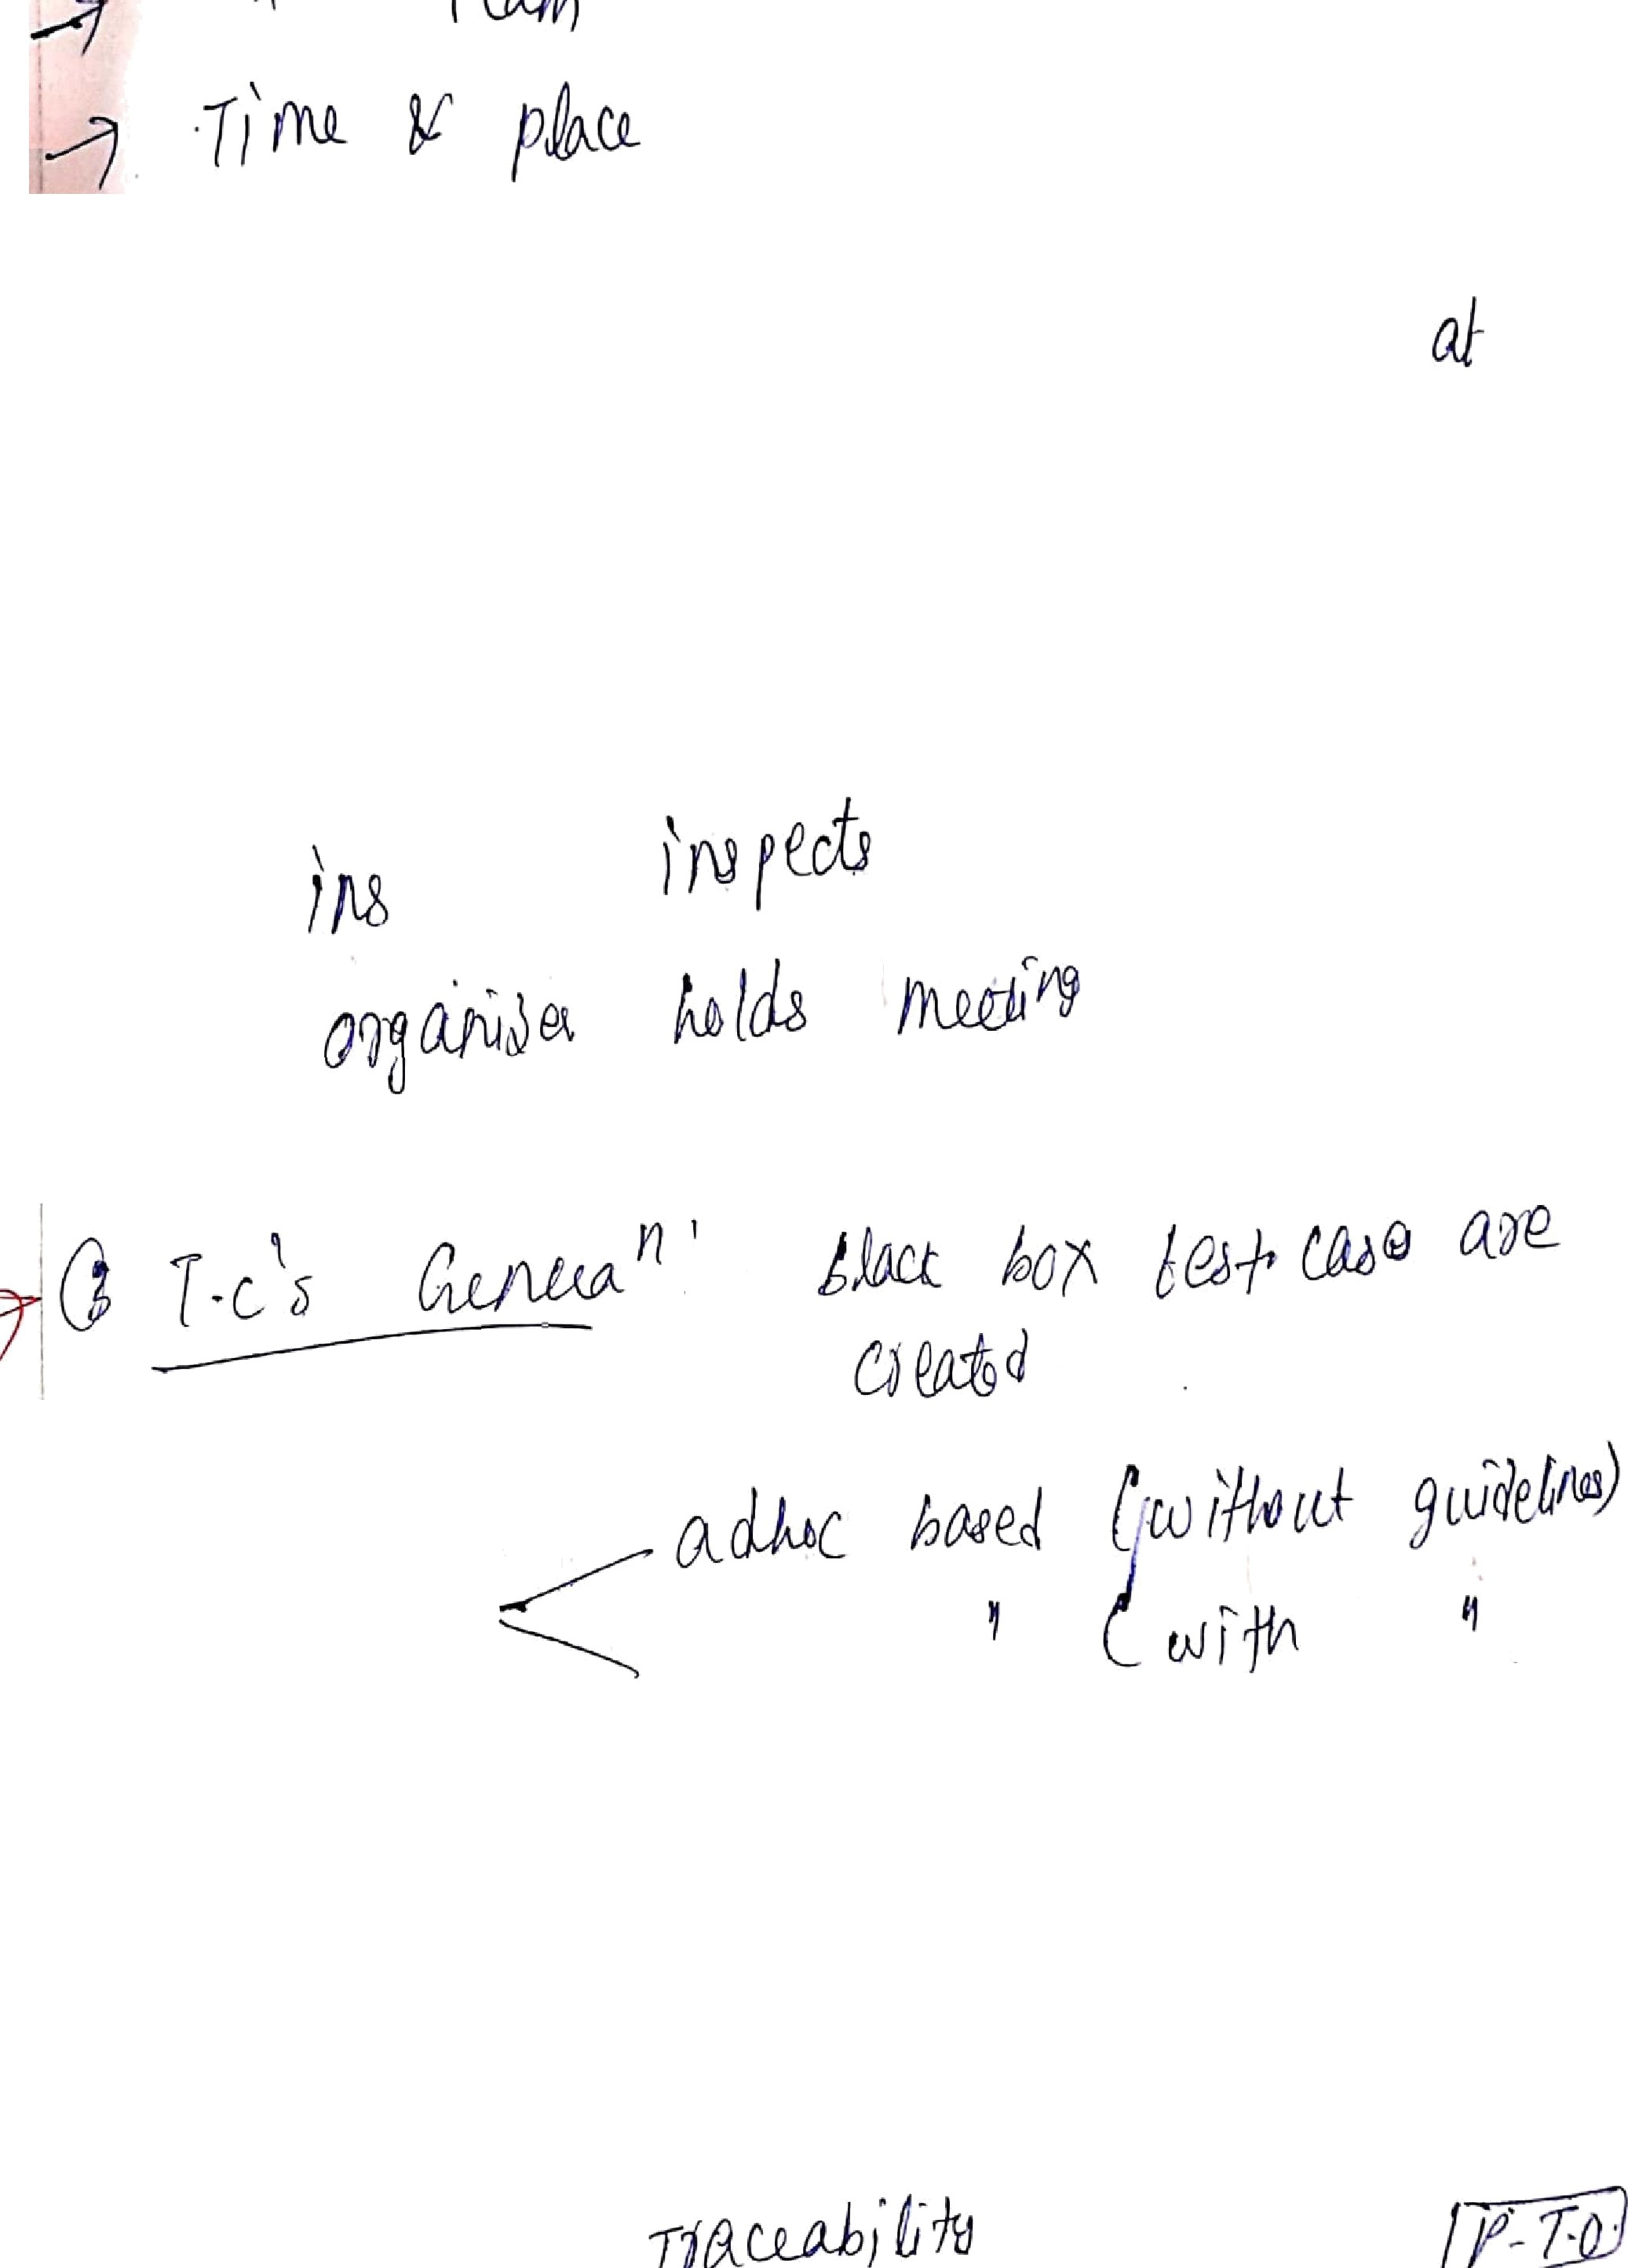 →
→ Time & place
at
ins inspects
organiser holds meeting
③ T.C's Generaⁿ: black box test case are
created
adhoc based (without guidelines)
" (with "
Traceability P.T.O.